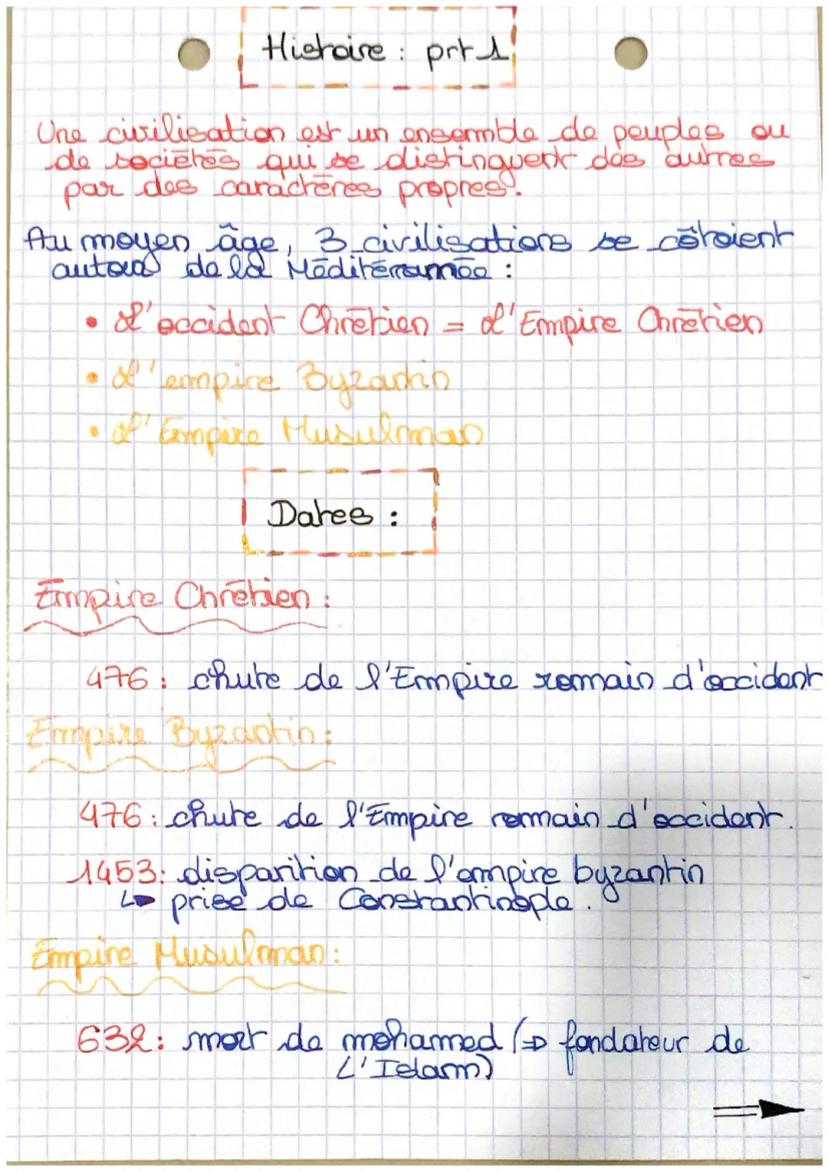 Histoire : prt 1
Une civilisation est un ensemble de peuples ou
de sociétés qui se distinguent des autres
par des caractères propres.
Au moyen âge, 3 civilisations se côtoient
autour de la Méditérannée :
• L'occident Chrétien = L'Empire Chrétien
• L'empire Byzantin
• L'Empire Musulman
Dates :
Empire Chrétien :
476 : chute de l'Empire romain d'occident
Empire Byzantin :
476 : chute de l'Empire romain d'occident.
1453 : disparition de l'empire byzantin
↳ prise de Constantinople.
Empire Musulman :
632 : mort de mohamed (⇒ fondateur de
L'Islam)
⇒